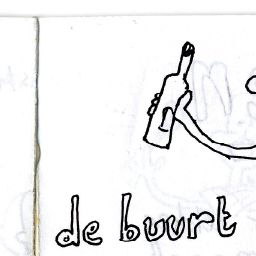 de buurt